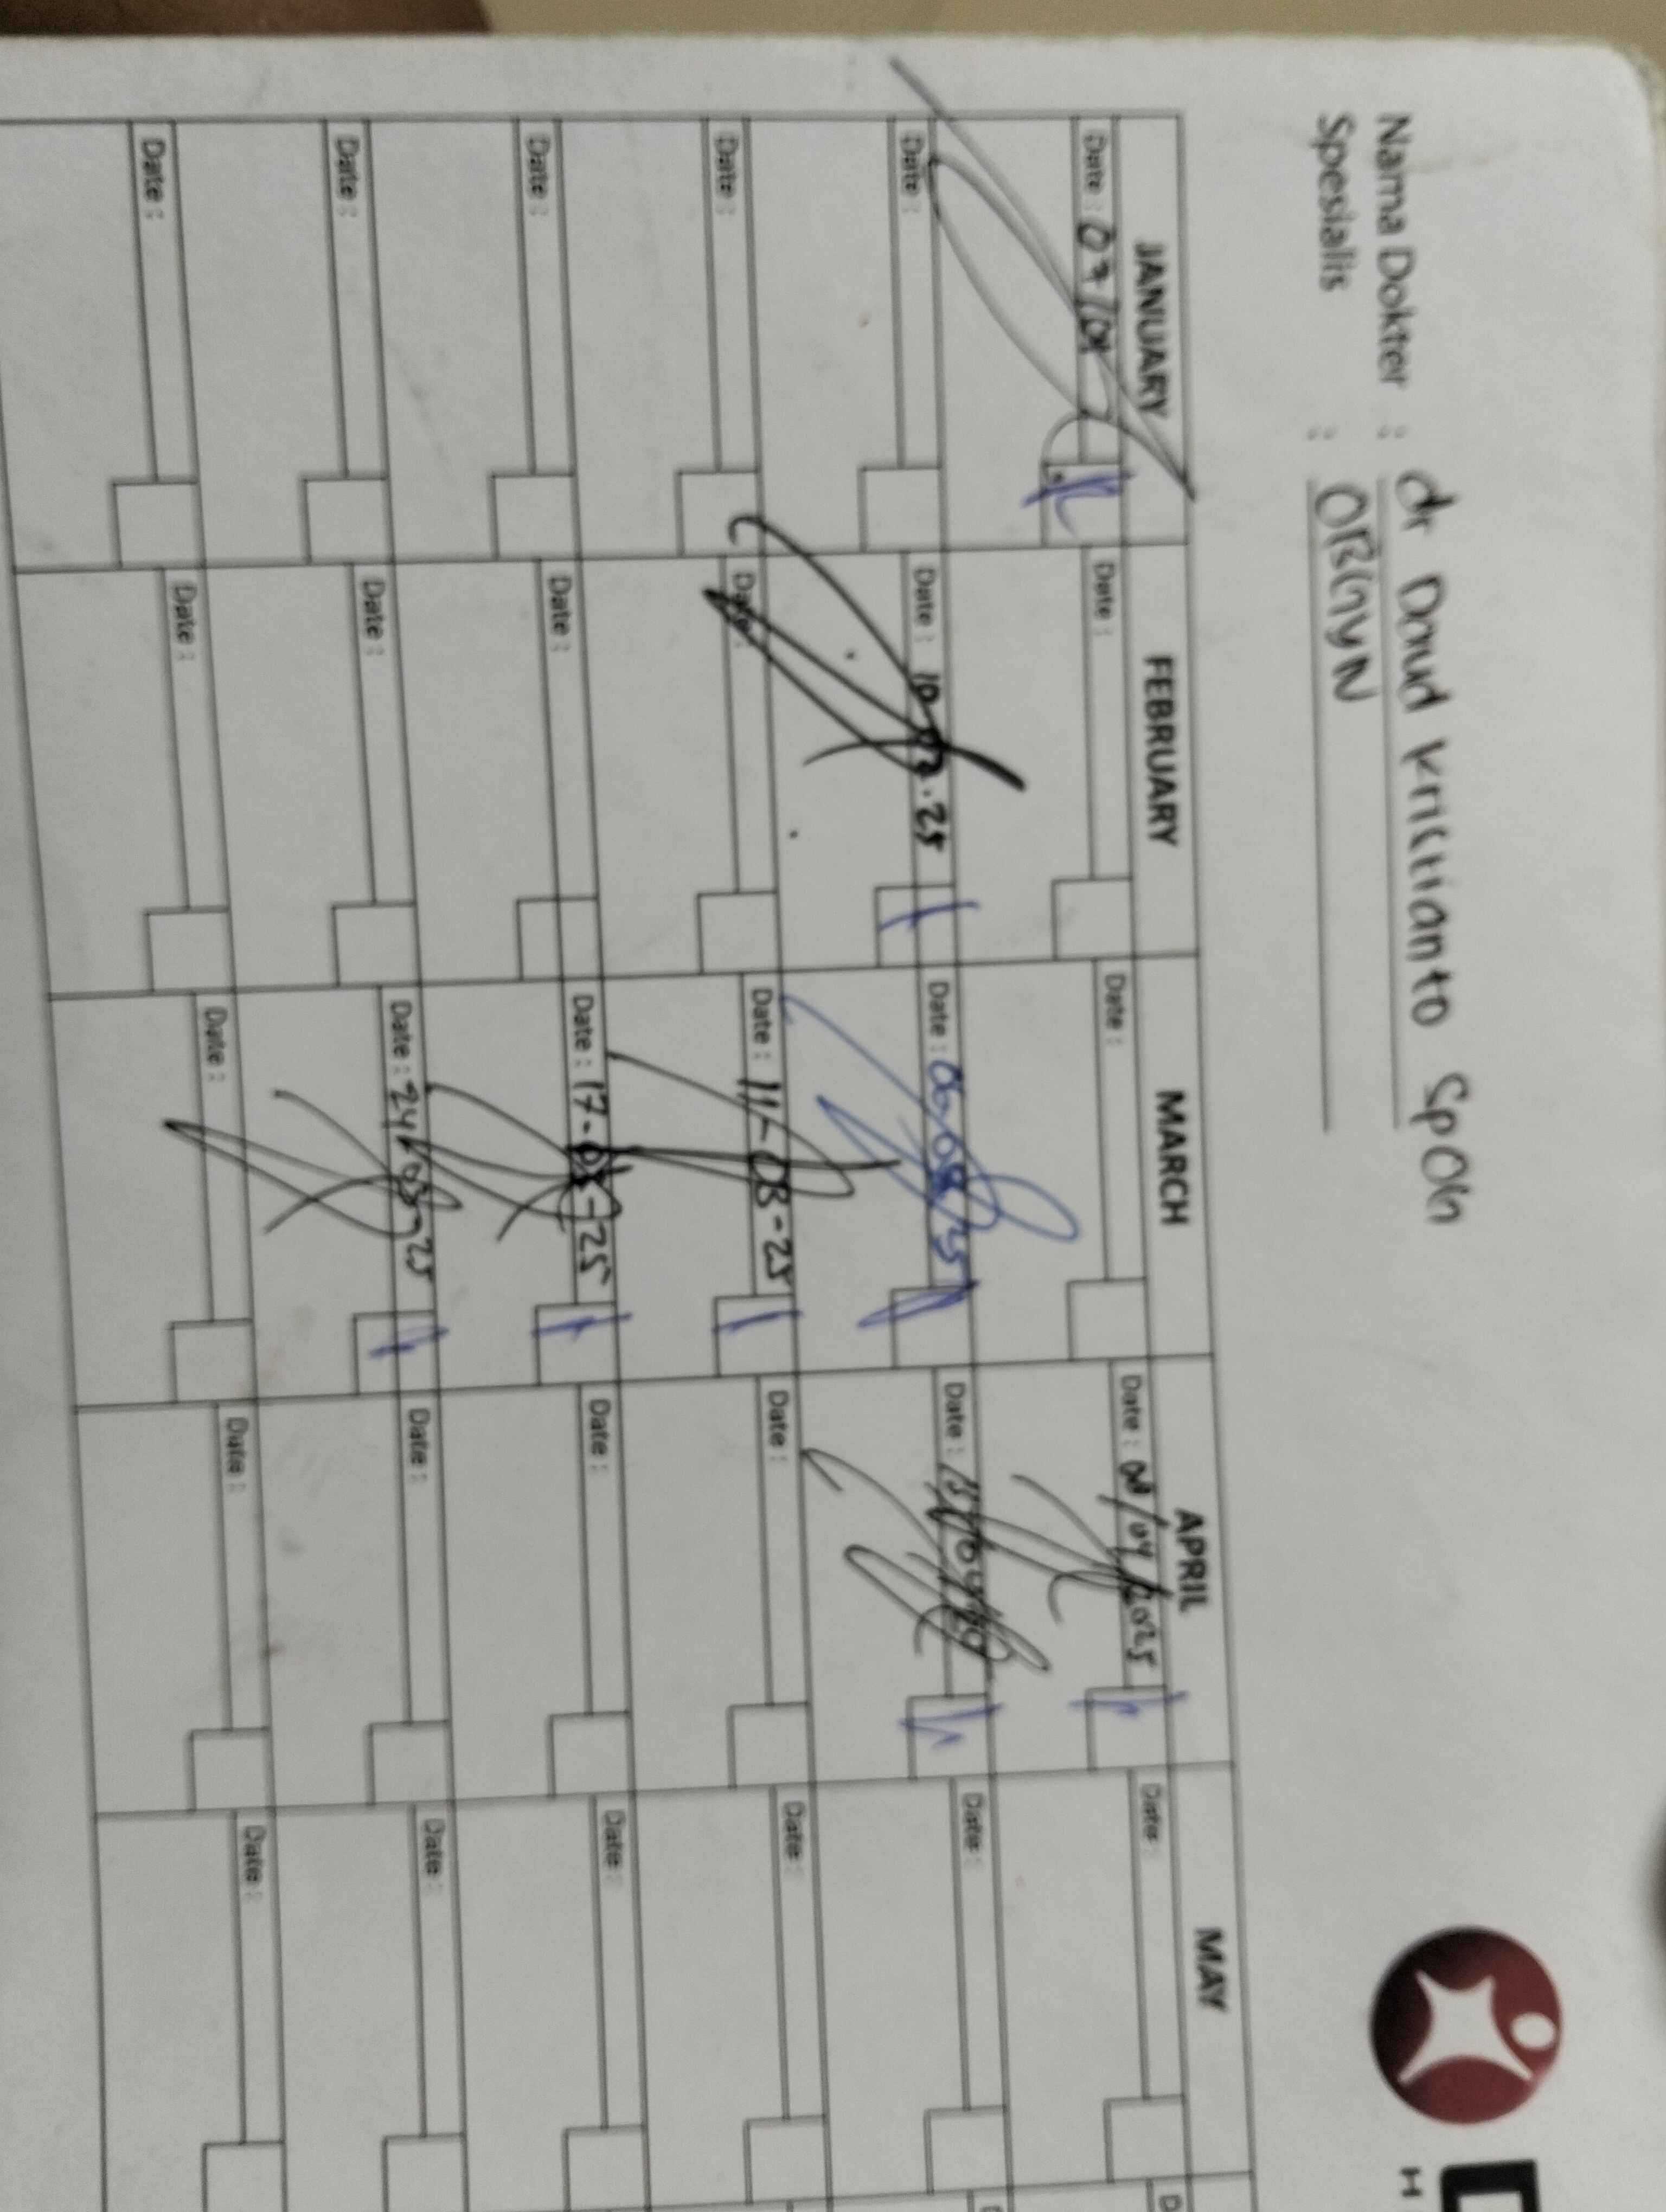 Nama Dokter : dr Daud Kristianto SpOG
Spesialis : OBGYN
JANUARY FEBRUARY MARCH APRIL MAY
Date : 07/01 Date : Date : Date : 08/04/2025 Date :
Date : Date : 10.02.25 Date : Date : Date :
Date : Date : Date : 11-03-25 Date : Date :
Date : Date : Date : 17-03-25 Date : Date :
Date : Date : Date : 24-03-25 Date : Date :
Date : Date : Date : Date : Date :
H